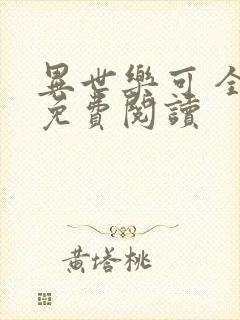 異世樂可 全
免費閱讀
黃塔桃